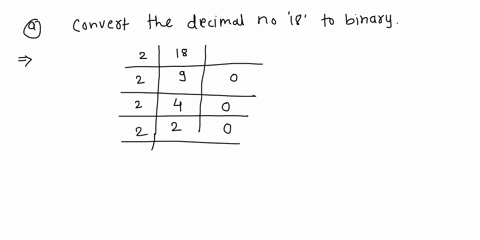 Q Convert the decimal no '18' to binary.
⇒ 2 18
2 9 0
2 4 0
2 2 0